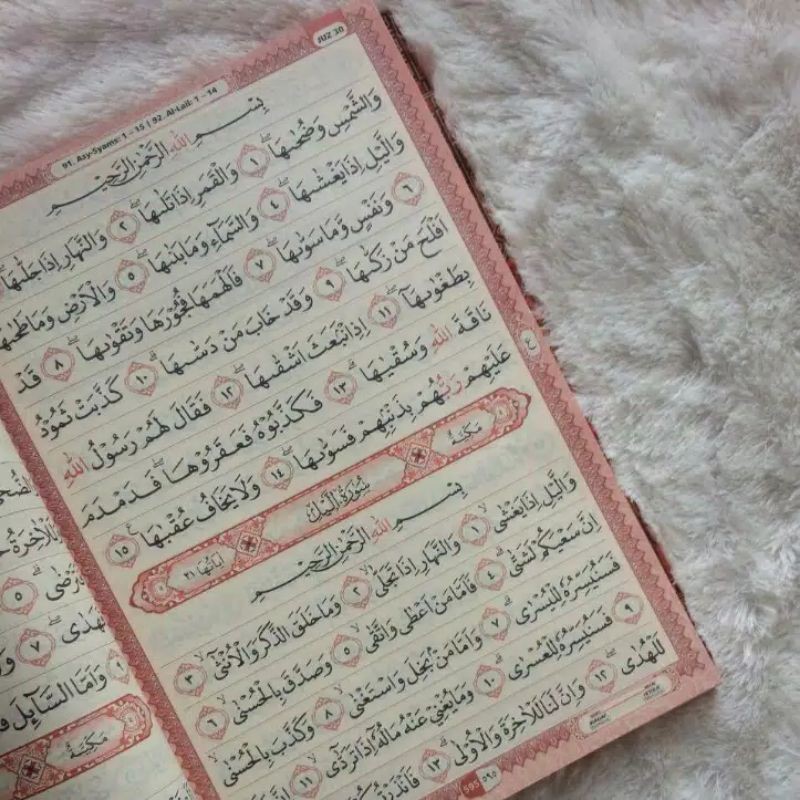 91. Asy-Syams: 1 – 15 | 92. Al-Lail: 1 – 14 JUZ 30
بِسْمِ اللهِ الرَّحْمٰنِ الرَّحِيْمِ
وَالشَّمْسِ وَضُحٰىهَاۖ ١ وَالْقَمَرِ اِذَا تَلٰىهَاۖ ٢ وَالنَّهَارِ اِذَا جَلّٰىهَا
وَالَّيْلِ اِذَا يَغْشٰىهَاۖ ٤ وَالسَّمَاۤءِ وَمَا بَنٰىهَاۖ ٥ وَالْاَرْضِ وَمَا طَحٰىهَا
٦ وَنَفْسٍ وَّمَا سَوّٰىهَاۖ ٧ فَاَلْهَمَهَا فُجُوْرَهَا وَتَقْوٰىهَاۖ ٨ قَدْ
اَفْلَحَ مَنْ زَكّٰىهَاۖ ٩ وَقَدْ خَابَ مَنْ دَسّٰىهَاۗ ١٠ كَذَّبَتْ ثَمُوْدُ
بِطَغْوٰىهَآۖ ١١ اِذِ انْۢبَعَثَ اَشْقٰىهَاۖ ١٢ فَقَالَ لَهُمْ رَسُوْلُ اللهِ
نَاقَةَ اللهِ وَسُقْيٰهَاۗ ١٣ فَكَذَّبُوْهُ فَعَقَرُوْهَاۖ فَدَمْدَمَ
عَلَيْهِمْ رَبُّهُمْ بِذَنْۢبِهِمْ فَسَوّٰىهَاۖ ١٤ وَلَا يَخَافُ عُقْبٰهَا ١٥
ع
مَكِّيَّةٌ سُوْرَةُ الَّيْلِ اٰيَاتُهَا ٢١
بِسْمِ اللهِ الرَّحْمٰنِ الرَّحِيْمِ
وَالَّيْلِ اِذَا يَغْشٰىۙ ١ وَالنَّهَارِ اِذَا تَجَلّٰىۙ ٢ وَمَا خَلَقَ الذَّكَرَ وَالْاُنْثٰىٓۙ ٣
اِنَّ سَعْيَكُمْ لَشَتّٰىۗ ٤ فَاَمَّا مَنْ اَعْطٰى وَاتَّقٰىۙ ٥ وَصَدَّقَ بِالْحُسْنٰىۙ ٦
فَسَنُيَسِّرُهٗ لِلْيُسْرٰىۗ ٧ وَاَمَّا مَنْۢ بَخِلَ وَاسْتَغْنٰىۙ ٨ وَكَذَّبَ بِالْحُسْنٰىۙ
٩ فَسَنُيَسِّرُهٗ لِلْعُسْرٰىۗ ١٠ وَمَا يُغْنِيْ عَنْهُ مَالُهٗٓ اِذَا تَرَدّٰىۙ ١١
لَلْهُدٰىۖ ١٢ وَاِنَّ لَنَا لَلْاٰخِرَةَ وَالْاُوْلٰى ١٣
595 ٥٩٥
٥
٧
وَاَمَّا السَّاۤئِلَ
مَكِّيَّةٌ